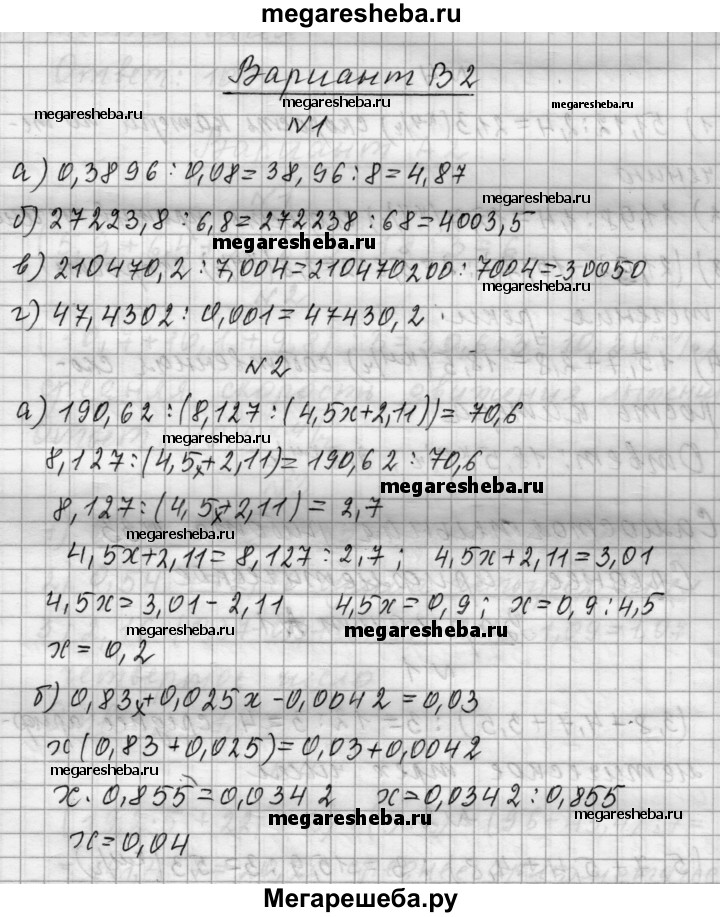 megaresheba.ru
Вариант В2
megaresheba.ru megaresheba.ru megaresheba.ru
№1
а) 0,3896 : 0,08 = 38,96 : 8 = 4,87
megaresheba.ru
б) 27223,8 : 6,8 = 272238 : 68 = 4003,5
megaresheba.ru
в) 210470,2 : 7,004 = 210470200 : 7004 = 30050
megaresheba.ru
г) 47,4302 : 0,001 = 47430,2
№2
а) 190,62 : (8,127 : (4,5x+2,11)) = 70,6
megaresheba.ru
8,127 : (4,5x+2,11) = 190,62 : 70,6
megaresheba.ru
8,127 : (4,5x+2,11) = 2,7
megaresheba.ru
4,5x+2,11 = 8,127 : 2,7 ; 4,5x+2,11 = 3,01
4,5x = 3,01 - 2,11 4,5x = 0,9 ; x = 0,9 : 4,5
megaresheba.ru megaresheba.ru
x = 0,2
б) 0,83x+0,025x - 0,0042 = 0,03
x (0,83+0,025) = 0,03+0,0042
megaresheba.ru
x · 0,855 = 0,0342 x = 0,0342 : 0,855
megaresheba.ru megaresheba.ru
x = 0,04
Мегарешеба.ру